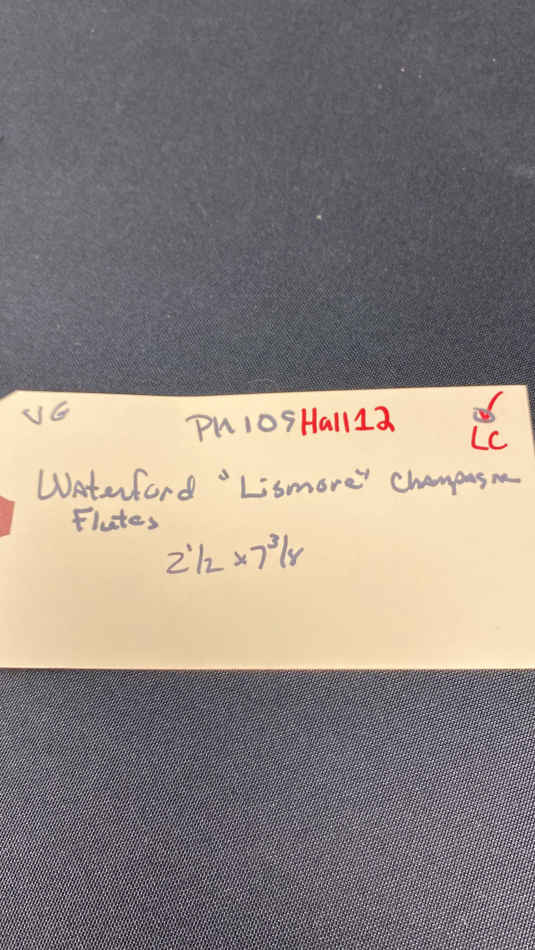 VG PN109 Hall12
LC
Waterford "Lismore" Champagne
Flutes
2 1/2 x 7 3/8